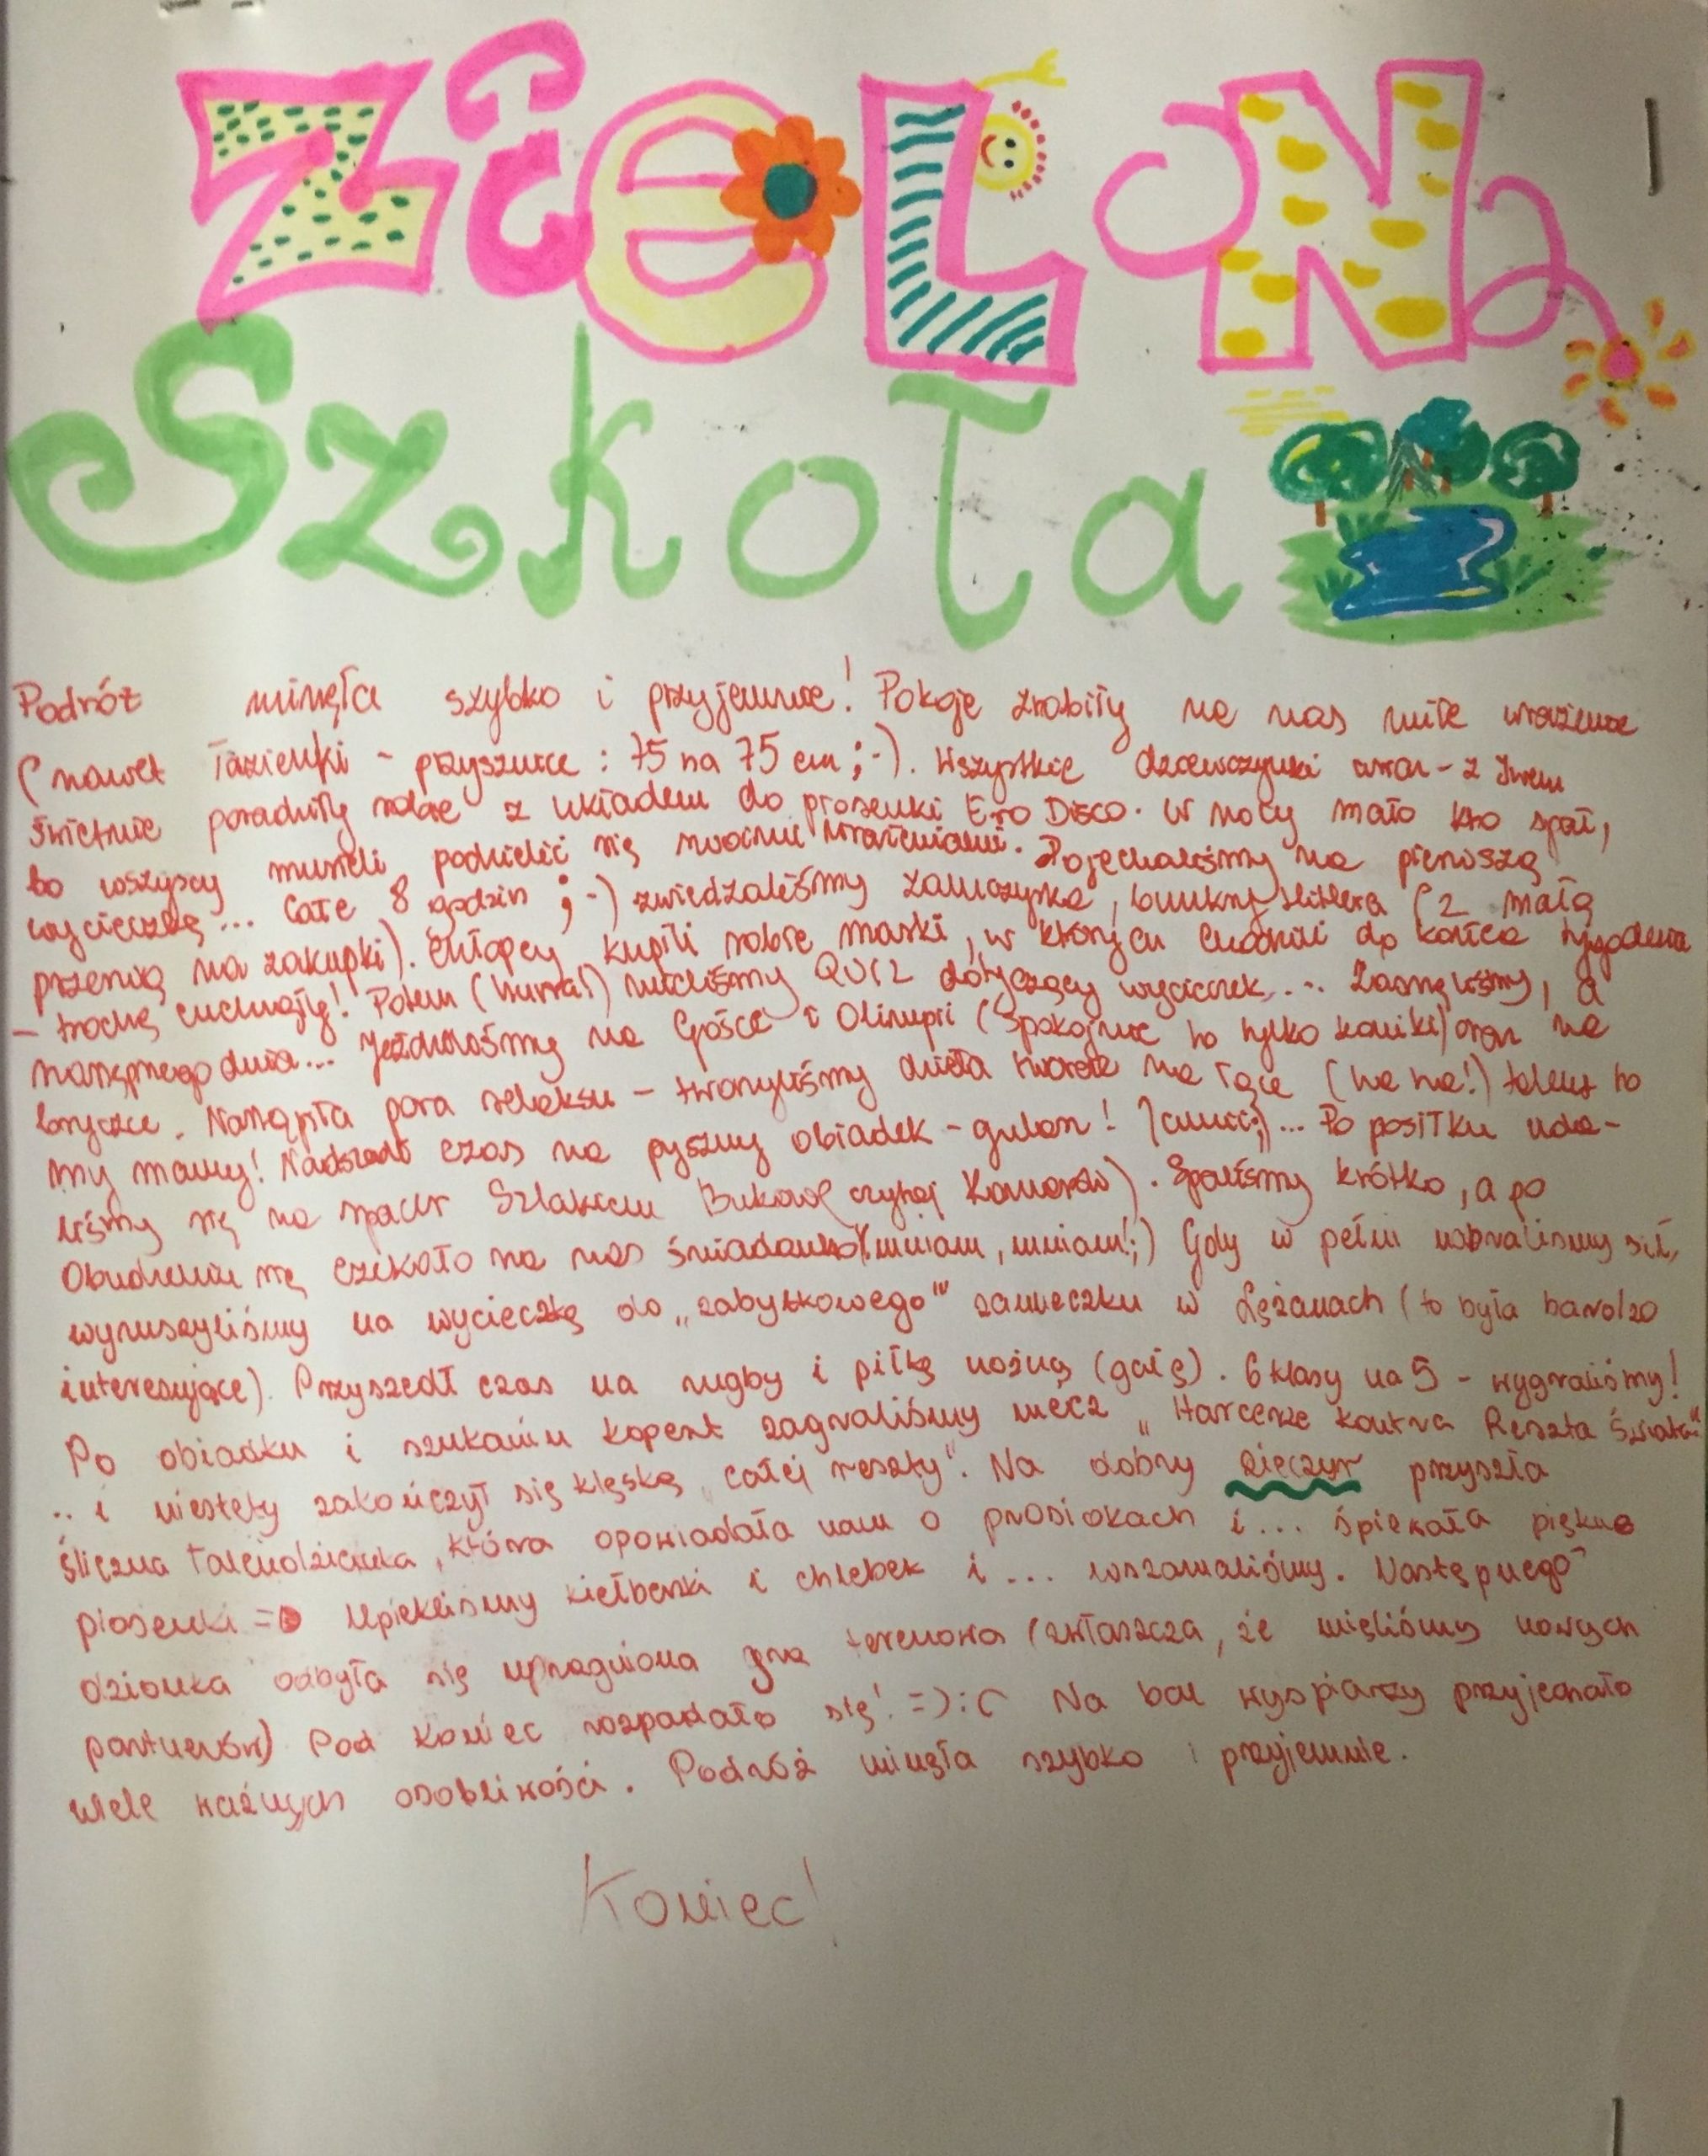 ZieLoNa
Szkoła
Podróż minęła szybko i przyjemnie! Pokoje zrobiły na nas miłe wrażenie
(nawet łazienki - prysznice : 75 na 75 cm ;-). Wszystkie dziewczynki wraz - z
świetnie poradziły sobie z układem do piosenki Ero Disco. W nocy mało kto spał,
bo wszyscy musieli podzielić się swoimi wrażeniami. Pojechaliśmy na pierwszą
wycieczkę... Całe 8 godzin ;-) zwiedzaliśmy zamczyska, bunkry Hitlera (z małą
przerwą na zakupki). Chłopcy kupili sobie maski, w których chodzili do końca tygodnia
- trochę cuchnęły! Potem (hurra!) mieliśmy QUIZ dotyczący wycieczek... Zasnęliśmy, a
następnego dnia... Jeździliśmy na Gosce i Olimpii (spokojnie to tylko koniki) oraz na
bryczce. Nastąpiła pora relaksu - tworzyliśmy dzieła na łące (ha ha!) talent to
my mamy! Nadszedł czas na pyszny obiadek - gulasz! ... Po posiłku uda-
liśmy się na spacer Szlakiem Bukowe czytaj Komarów). Spaliśmy krótko, a po
obudzeniu się czekało na nas śniadanko (mniam, mniam!;) Gdy w pełni nabraliśmy sił,
wyruszyliśmy na wycieczkę do „zabytkowego" zameczku w Łężanach (to była bardzo
interesujące). Przyszedł czas na rugby i piłkę nożną (gałę). 6 klasy na 5 - wygraliśmy!
Po obiadku i szukaniu kopert zagraliśmy mecz „Harcerze kontra Reszta Świata"
.. i niestety zakończył się klęską „całej reszty". Na dobry wieczór przyszła
śliczna , która opowiadała nam o prosiakach i... śpiewała piękne
piosenki = Upiekliśmy kiełbaski i chlebek i... wszamaliśmy. Następnego
dzionka odbyła się upragniona gra terenowa (zwłaszcza, że mieliśmy nowych
partnerów) Pod koniec rozpadało się! =):( Na bal wyspiarzy przyjechało
wiele ważnych osobliwości. Podróż minęła szybko i przyjemnie.
Koniec!